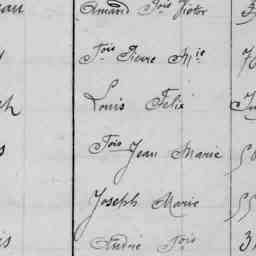 Amand Fois Victor
Fois Pierre Mie
Louis Félix
Fois Jean Marie
Joseph Marie
André Fois